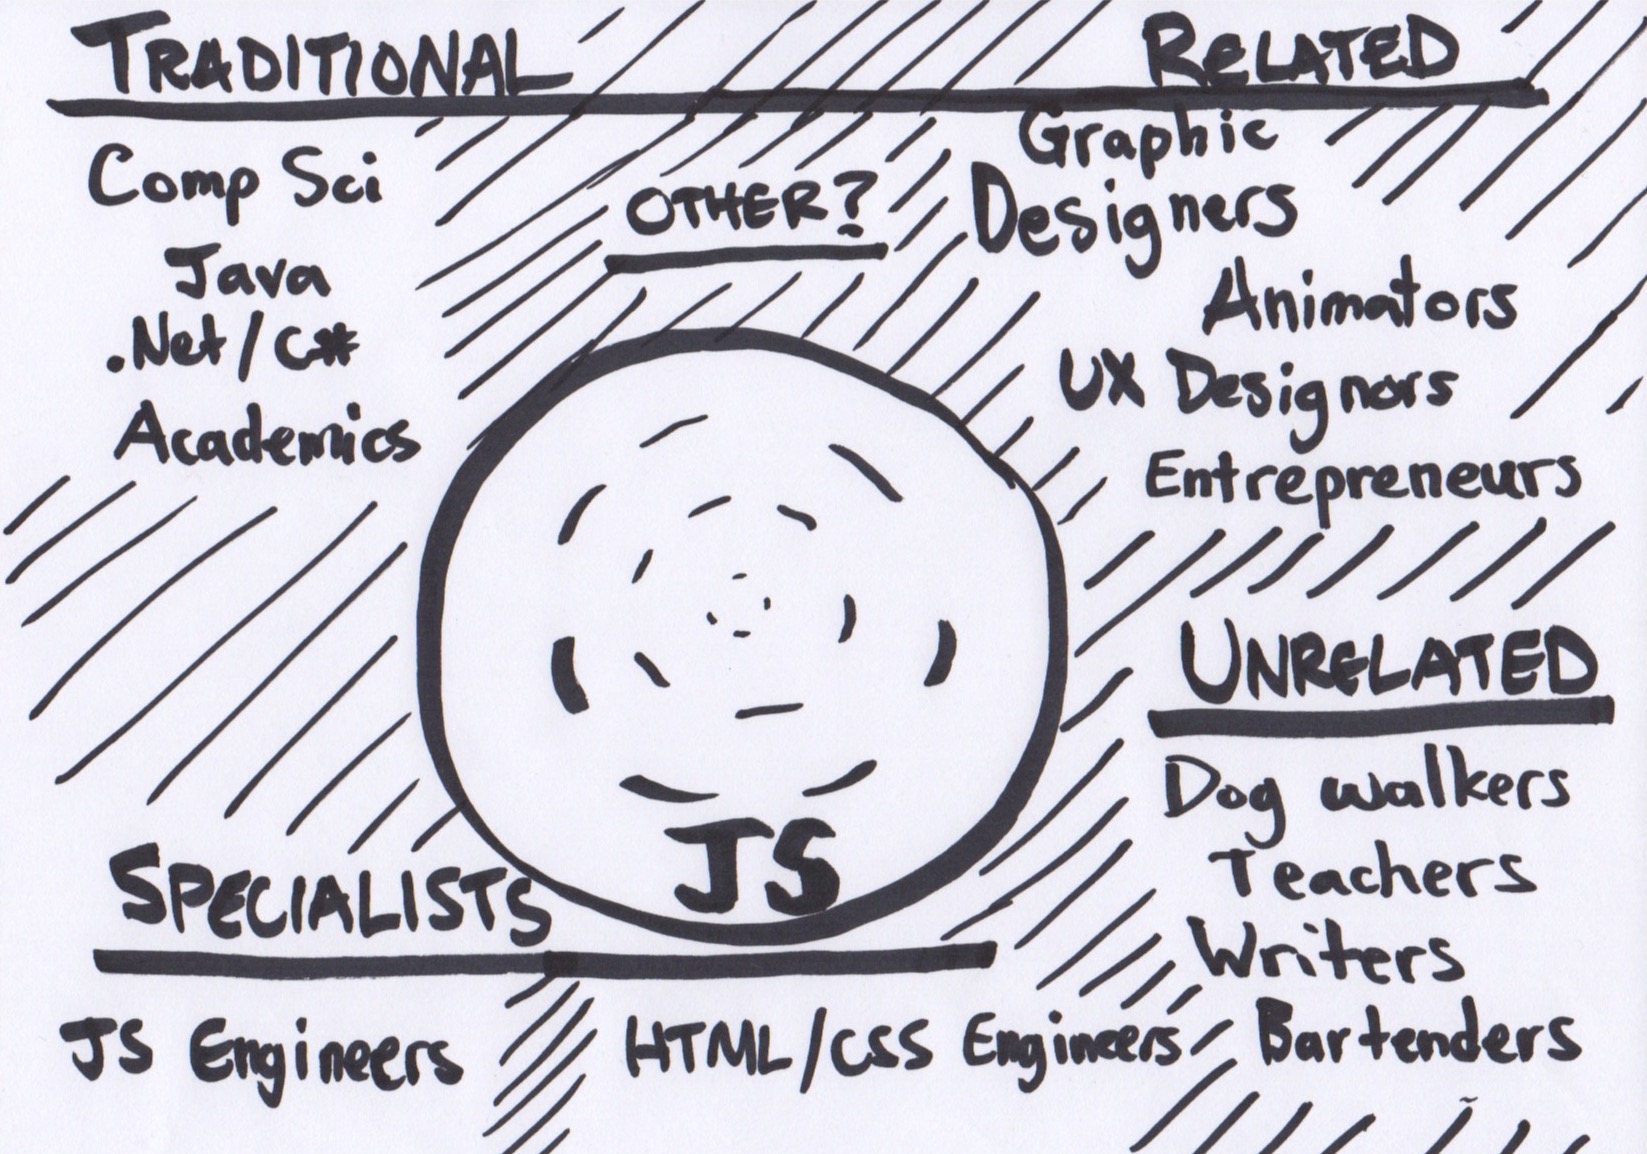 TRADITIONAL
Comp Sci
Java
.Net/C#
Academics
OTHER?
RELATED
Graphic
Designers
Animators
UX Designors
Entrepreneurs
UNRELATED
Dog walkers
Teachers
Writers
Bartenders
JS
SPECIALISTS
JS Engineers
HTML/CSS Engineers